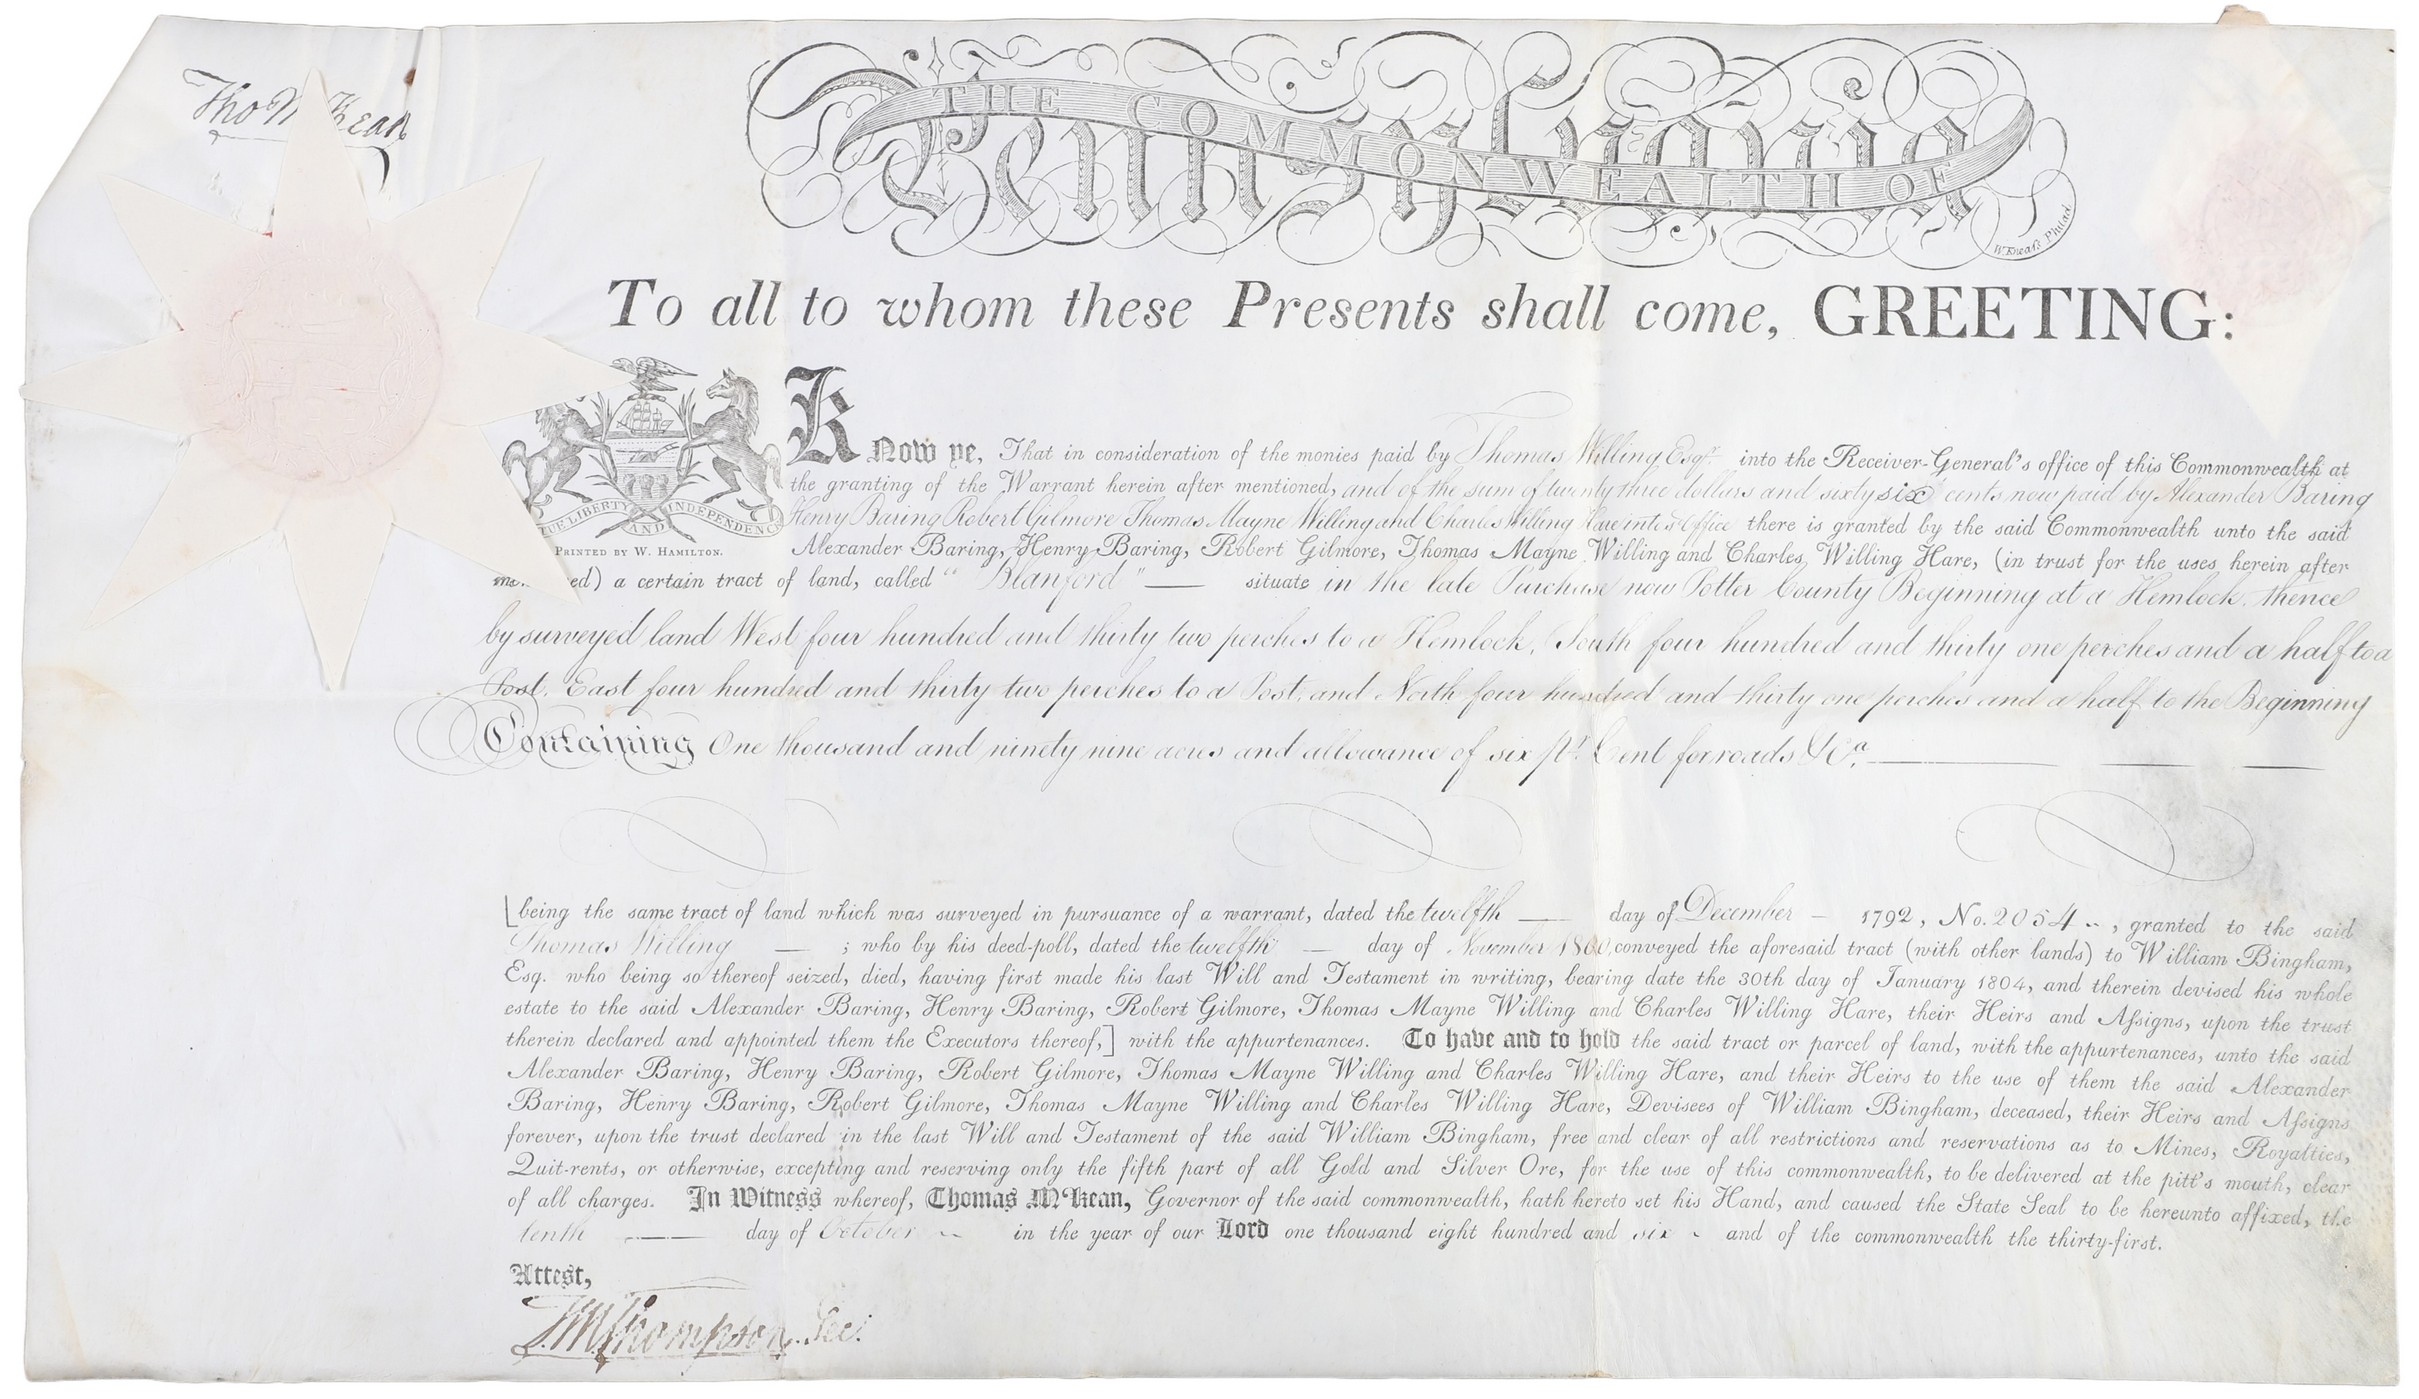 Tho M:Kean
THE COMMONWEALTH OF
Pennsylvania
W. Kneaſs Philad.
To all to whom these Presents shall come, GREETING:
Know ye, That in consideration of the monies paid by Thomas Willing Esqr. into the Receiver-General's office of this Commonwealth at
the granting of the Warrant herein after mentioned, and of the sum of twenty three dollars and sixty six cents now paid by Alexander Baring
Henry Baring Robert Gilmore Thomas Mayne Willing and Charles Willing Hare into sd Office there is granted by the said Commonwealth unto the said
UE LIBERTY AND INDEPENDENC
PRINTED BY W. HAMILTON.
Alexander Baring, Henry Baring, Robert Gilmore, Thomas Mayne Willing and Charles Willing Hare, (in trust for the uses herein after
me ed) a certain tract of land, called "Blanford" situate in the late Purchase now Potter County Beginning at a Hemlock, thence
by surveyed land West four hundred and thirty two perches to a Hemlock, South four hundred and thirty one perches and a half to a
Post, East four hundred and thirty two perches to a Post, and North four hundred and thirty one perches and a half to the Beginning
Containing One thousand and ninety nine acres and allowance of six pr. Cent for roads &ca.
[being the same tract of land which was surveyed in pursuance of a warrant, dated the twelfth day of December 1792, No. 2054, granted to the said
Thomas Willing ; who by his deed-poll, dated the twelfth day of November 1800, conveyed the aforesaid tract (with other lands) to William Bingham,
Esq. who being so thereof seized, died, having first made his last Will and Testament in writing, bearing date the 30th day of January 1804, and therein devised his whole
estate to the said Alexander Baring, Henry Baring, Robert Gilmore, Thomas Mayne Willing and Charles Willing Hare, their Heirs and Aſsigns, upon the trust
therein declared and appointed them the Executors thereof,] with the appurtenances. To have and to hold the said tract or parcel of land, with the appurtenances, unto the said
Alexander Baring, Henry Baring, Robert Gilmore, Thomas Mayne Willing and Charles Willing Hare, and their Heirs to the use of them the said Alexander
Baring, Henry Baring, Robert Gilmore, Thomas Mayne Willing and Charles Willing Hare, Devisees of William Bingham, deceased, their Heirs and Aſsigns
forever, upon the trust declared in the last Will and Testament of the said William Bingham, free and clear of all restrictions and reservations as to Mines, Royalties,
Quit-rents, or otherwise, excepting and reserving only the fifth part of all Gold and Silver Ore, for the use of this commonwealth, to be delivered at the pitt's mouth, clear
of all charges. In Witness whereof, Thomas M'Kean, Governor of the said commonwealth, hath hereto set his Hand, and caused the State Seal to be hereunto affixed, the
tenth day of October in the year of our Lord one thousand eight hundred and six and of the commonwealth the thirty-first.
Attest,
T.M. Thompson. Sec: